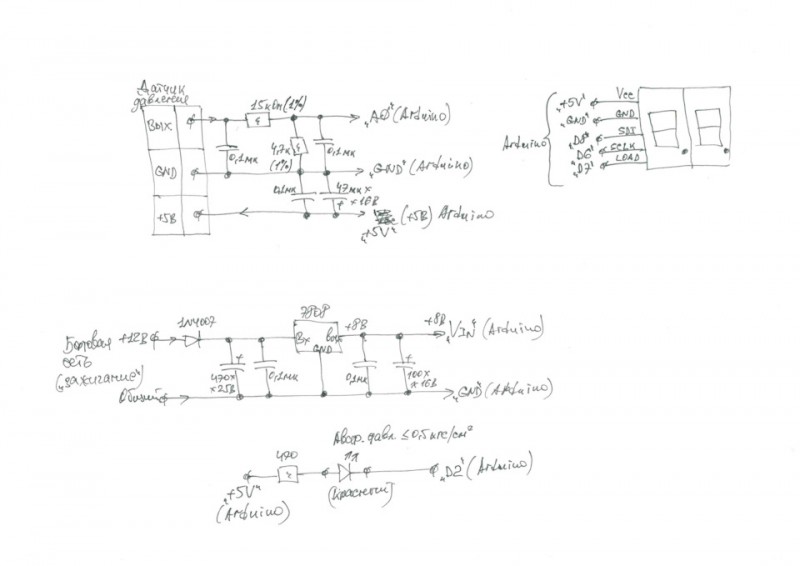 Датчик
давления
Вых
GND
+5В
15 кОм (1%)
0,1мк
4,7к
(1%)
0,1мк
0,1мк
47мк x
x 16В
"A0" (Arduino)
"GND" (Arduino)
(+5В) Arduino
"+5V"
Arduino
"+5V"
"GND"
"D8"
"D6"
"D7"
Vcc
GND
SDI
SCLK
LOAD
Бортовая
сеть
("зажигание")
+12В
Общий
1N4007
470x
x25В
0,1мк
7808
Вх
Вых
GND
+8В
0,1мк
100x
x 16В
+8В
"VIN" (Arduino)
"GND" (Arduino)
Авар. давл. ≤ 0,5 кгс/см²
470
"+5V"
(Arduino)
(красный)
"D2" (Arduino)